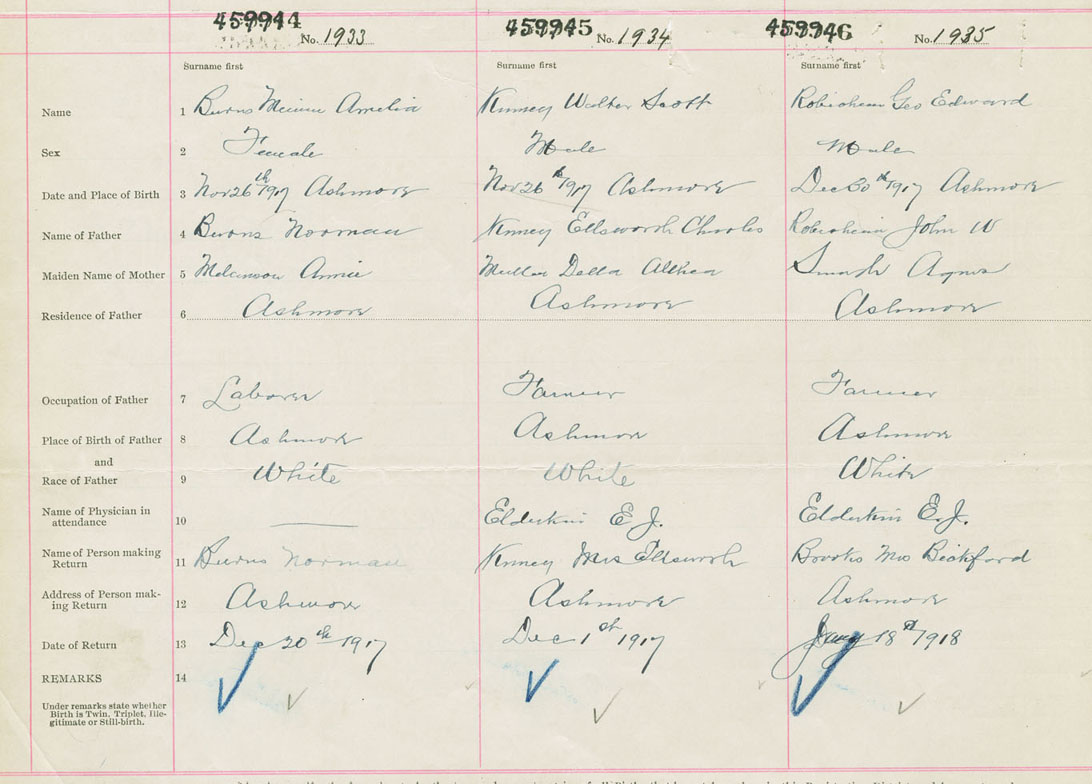 459944 No. 1933 459945 No. 1934 459946 No. 1935
Surname first Surname first Surname first
Name 1 Burns Minnie Amelia Kinney Walter Scott Robicheau Geo Edward
Sex 2 Female Male Male
Date and Place of Birth 3 Nov 26th 1917 Ashmore Nov 26th 1917 Ashmore Dec 30th 1917 Ashmore
Name of Father 4 Burns Norman Kinney Ellsworth Charles Robicheau John W
Maiden Name of Mother 5 Annie Mullen Della Althea Agnes
Residence of Father 6 Ashmore Ashmore Ashmore
Occupation of Father 7 Laborer Farmer Farmer
Place of Birth of Father 8 Ashmore Ashmore Ashmore
and
Race of Father 9 White White White
Name of Physician in
attendance 10 — Elderkin E J. Elderkin E. J.
Name of Person making
Return 11 Burns Norman Kinney Mrs Ellsworth Brooks Mrs Bickford
Address of Person mak-
ing Return 12 Ashmore Ashmore Ashmore
Date of Return 13 Dec 20th 1917 Dec 1st 1917 Jany 18th 1918
REMARKS 14
Under remarks state whether
Birth is Twin, Triplet, Ille-
gitimate or Still-birth.